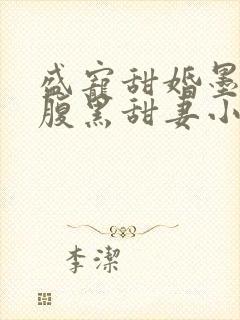 盛寵甜婚墨
腹黑甜妻小
李潔